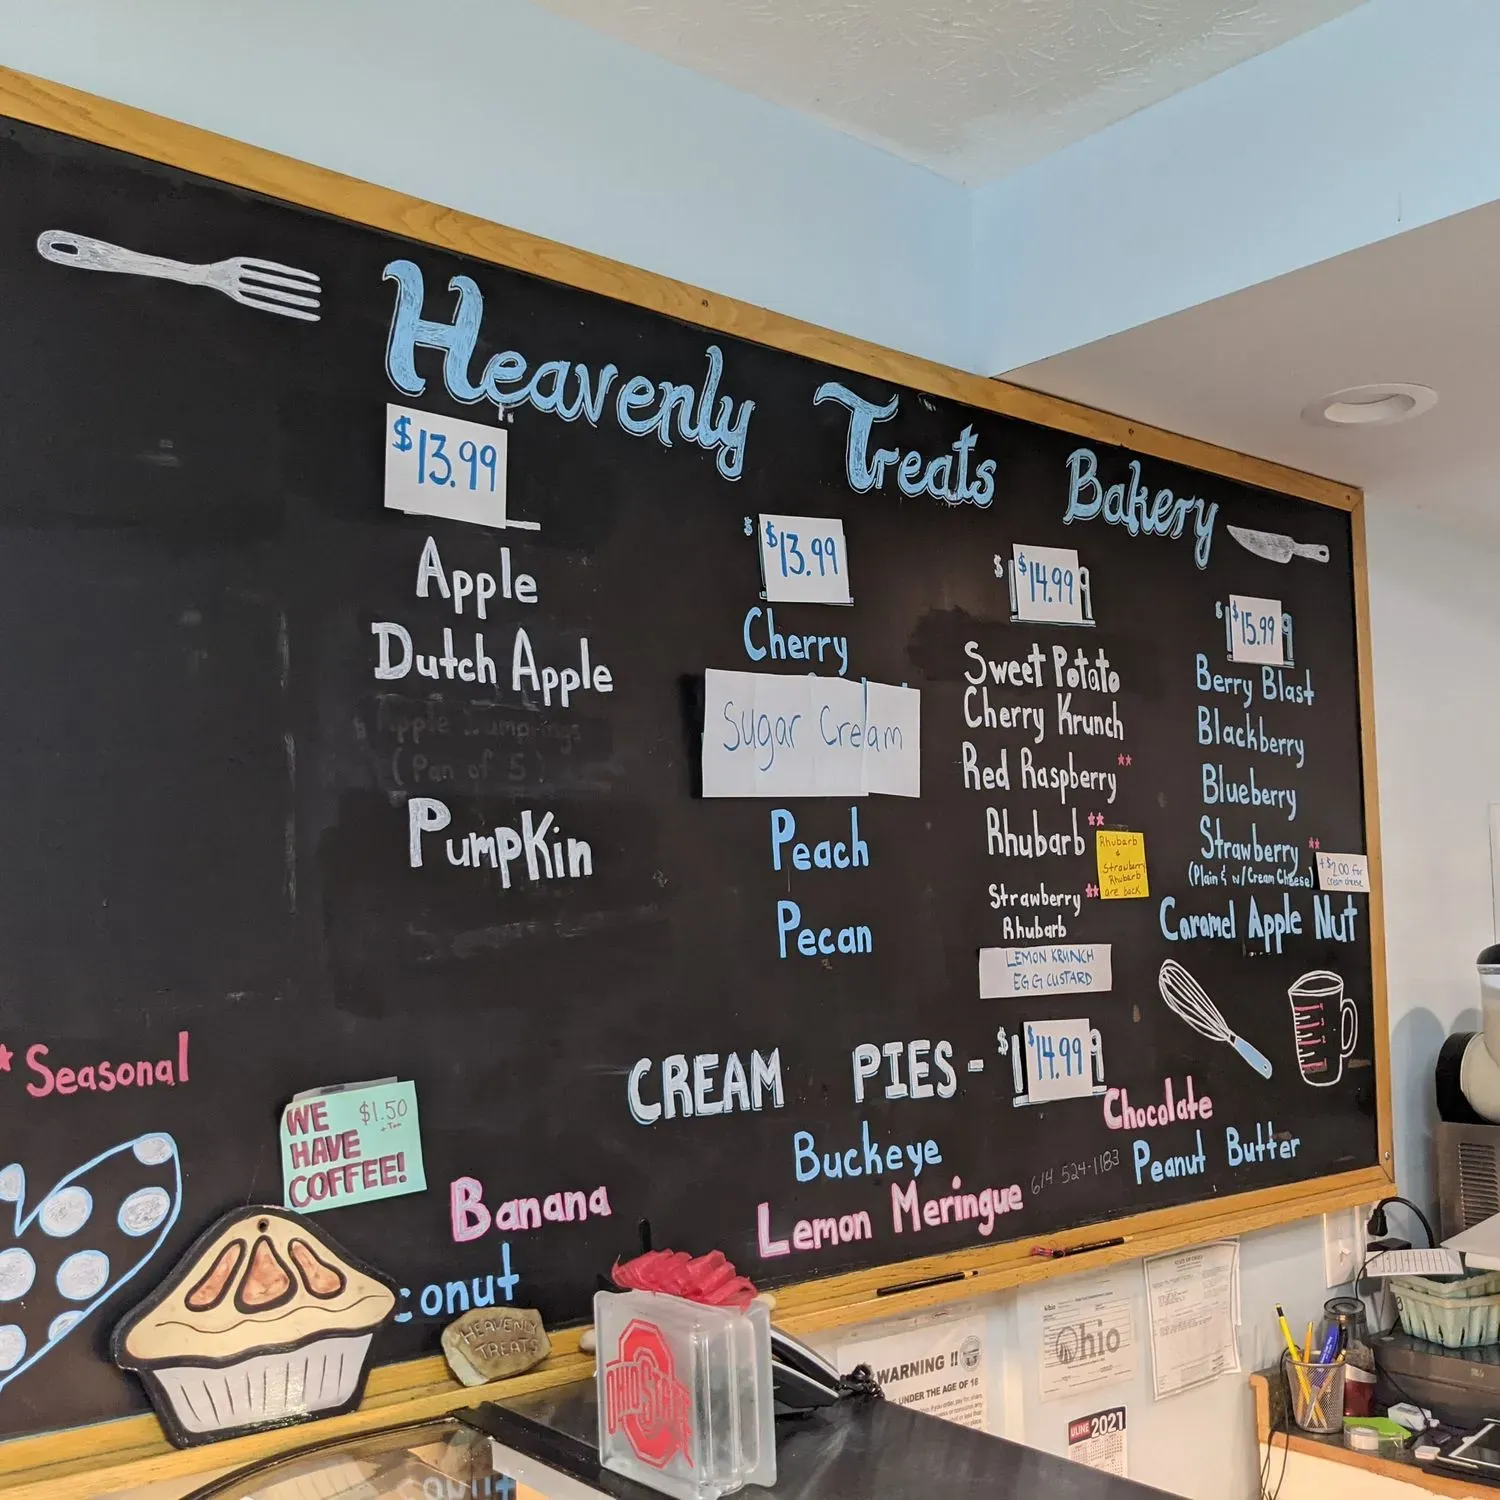 Heavenly Treats Bakery
$13.99
Apple
Dutch Apple
Apple Dumplings
(Pan of 5)
Pumpkin
$ $13.99
Cherry
Sugar Cream
Peach
Pecan
$ $14.99
Sweet Potato
Cherry Krunch
Red Raspberry**
Rhubarb**
Rhubarb
&
Strawberry
Rhubarb
are back
Strawberry**
Rhubarb
LEMON KRUNCH
EGG CUSTARD
$ $15.99
Berry Blast
Blackberry
Blueberry
Strawberry**
(Plain & w/Cream Cheese)
+$2.00 for
cream cheese
Caramel Apple Nut
* Seasonal
WE
HAVE
COFFEE!
$1.50
+Tax
CREAM PIES - $ $14.99
Banana
conut
Buckeye
Lemon Meringue
614 524-1183
Chocolate
Peanut Butter
HEAVENLY
TREATS
OHIO STATE
WARNING !!
UNDER THE AGE OF 18
Ohio
ULINE 2021